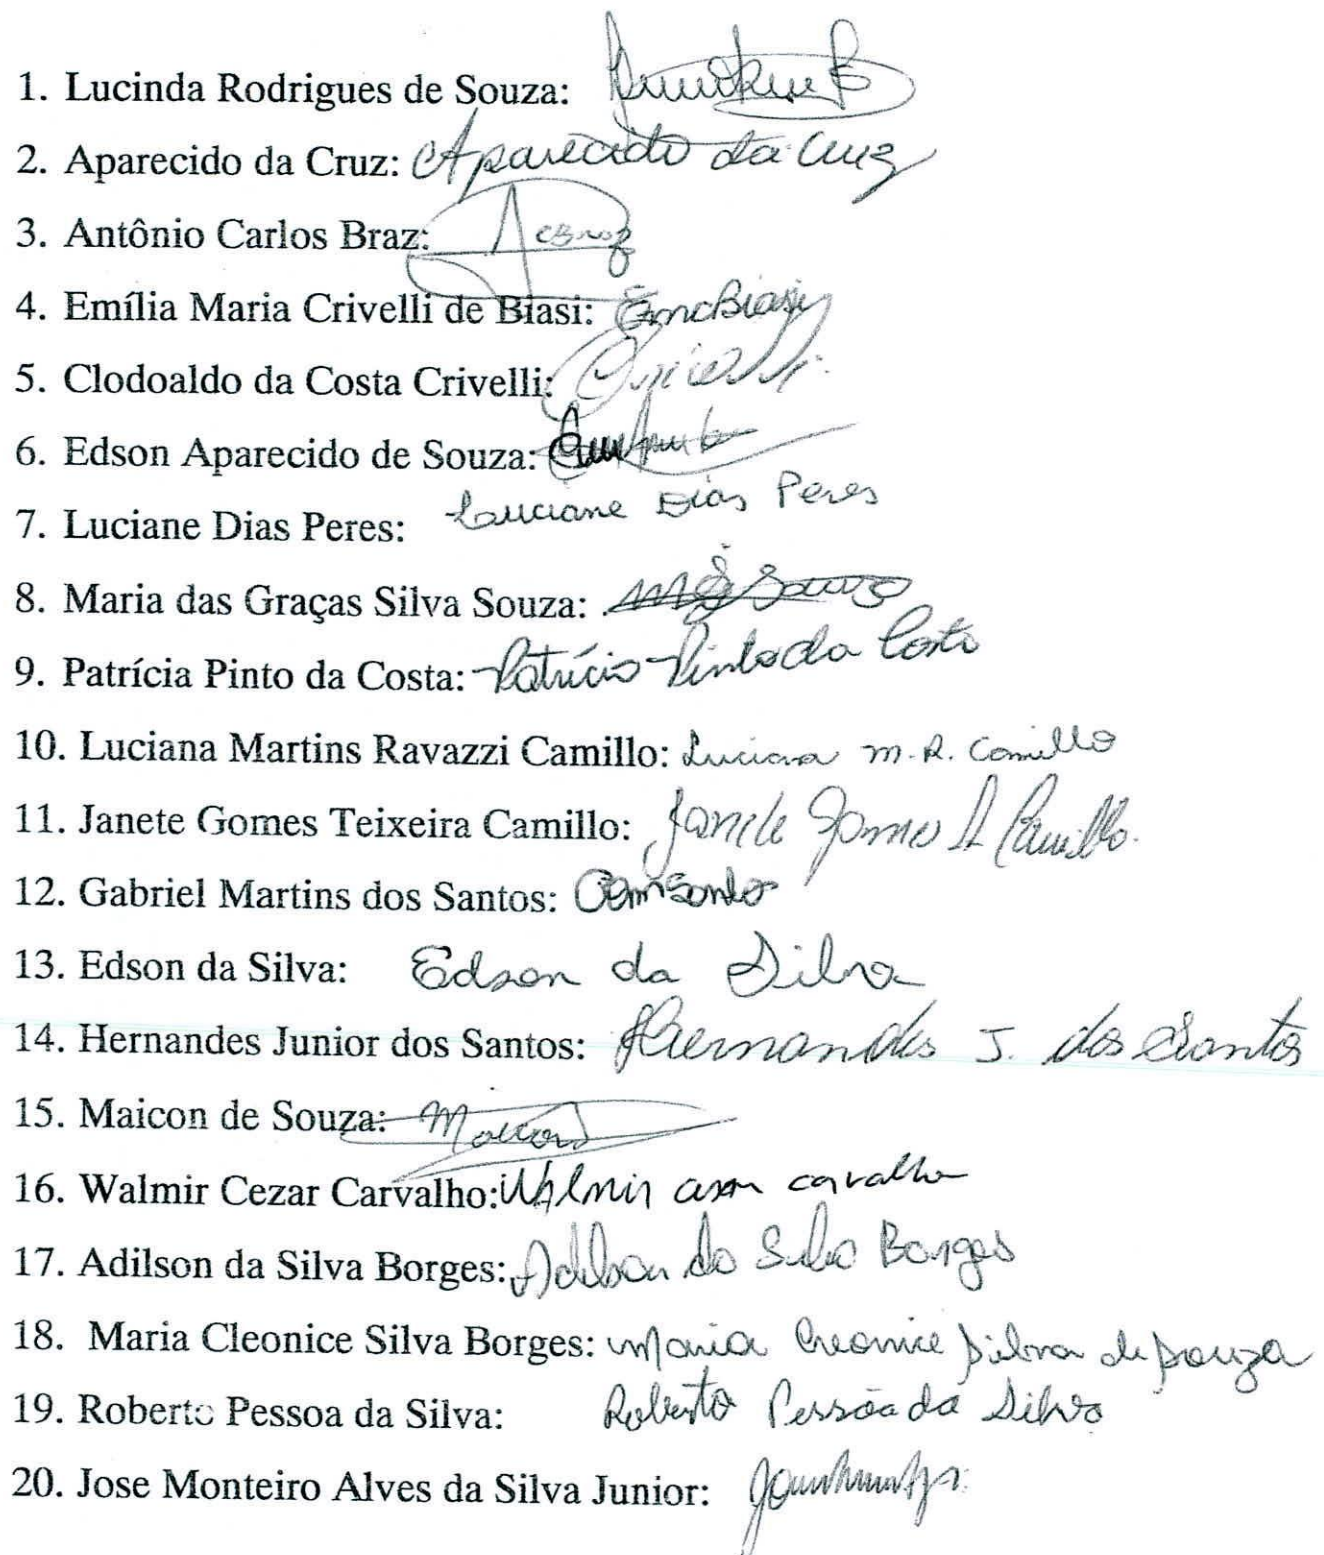 1. Lucinda Rodrigues de Souza:
2. Aparecido da Cruz: Aparecido da Cruz
3. Antônio Carlos Braz: ACBraz
4. Emília Maria Crivelli de Biasi: EmcBiasi
5. Clodoaldo da Costa Crivelli: Crivelli
6. Edson Aparecido de Souza:
7. Luciane Dias Peres: Luciane Dias Peres
8. Maria das Graças Silva Souza: MGSSouza
9. Patrícia Pinto da Costa: Patrícia Pinto da Costa
10. Luciana Martins Ravazzi Camillo: Luciana M. R. Camillo
11. Janete Gomes Teixeira Camillo: Janete Gomes T. Camillo.
12. Gabriel Martins dos Santos: GmSantos
13. Edson da Silva: Edson da Silva
14. Hernandes Junior dos Santos: Hernandes J. dos Santos
15. Maicon de Souza: Maicon
16. Walmir Cezar Carvalho: Walmir carvalho
17. Adilson da Silva Borges: Adilson da Silva Borges
18. Maria Cleonice Silva Borges: Maria Creonice Silva de Souza
19. Roberto Pessoa da Silva: Roberto Pessoa da Silva
20. Jose Monteiro Alves da Silva Junior: